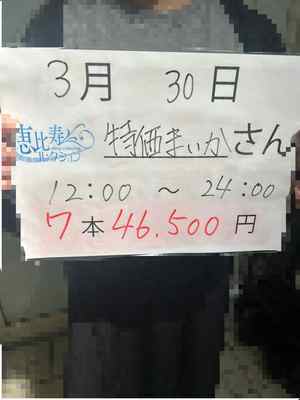 3月 30日
恵比寿
コレクション
特価まいかさん
12:00 ～ 24:00
7本46.500円